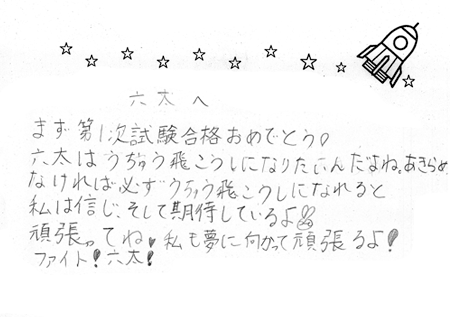 六太へ
まず第1次試験合格おめでとう!
六太はうちゅう飛こうしになりたいんだよね。あきらめ
なければ必ずうちゅう飛こうしになれると
私は信じ、そして期待しているよ
頑張ってね!私も夢に向かって頑張るよ!
ファイト!六太!